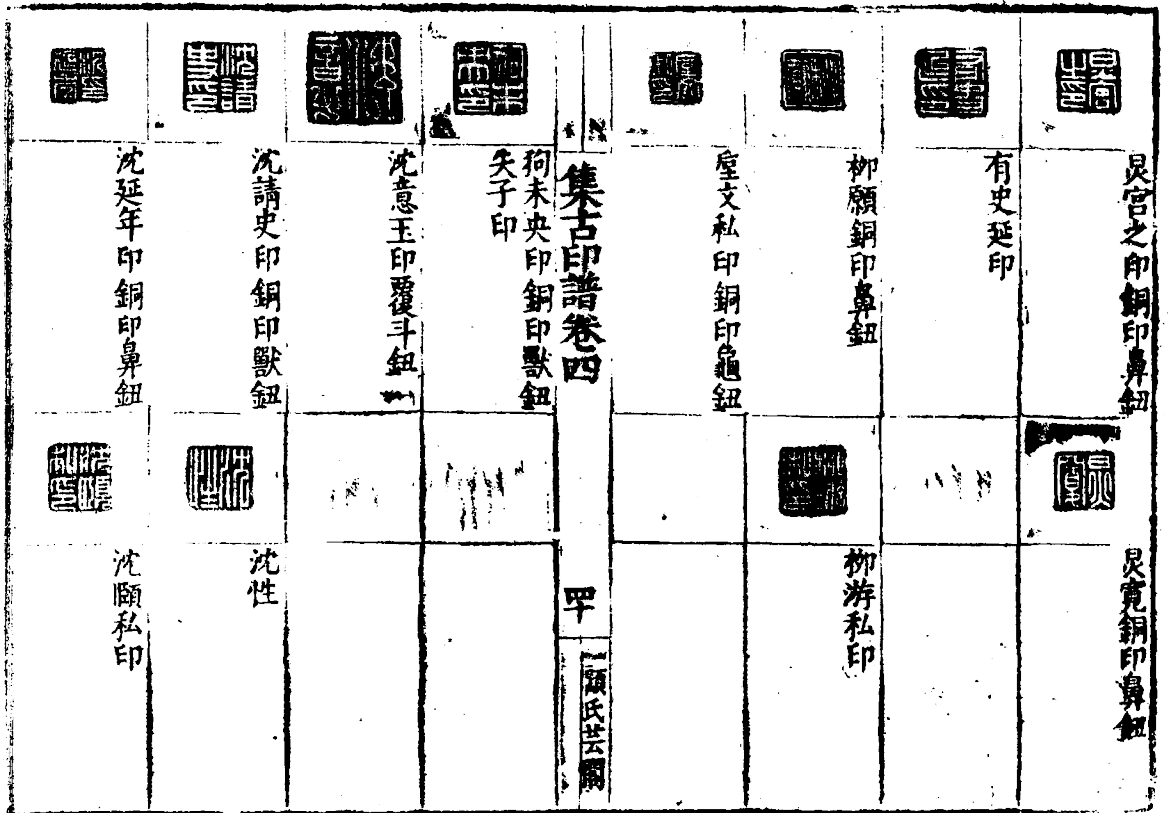 炅宮之印銅印鼻鈕
炅寬銅印鼻鈕
有史延印
柳願銅印鼻鈕
柳游私印
文私印銅印龜鈕
集古印譜卷四
四十
顧氏芸閣
狗未央印銅印獸鈕
失子印
沈意玉印覆斗鈕
沈請史印銅印獸鈕
沈性
沈延年印銅印鼻鈕
沈頤私印